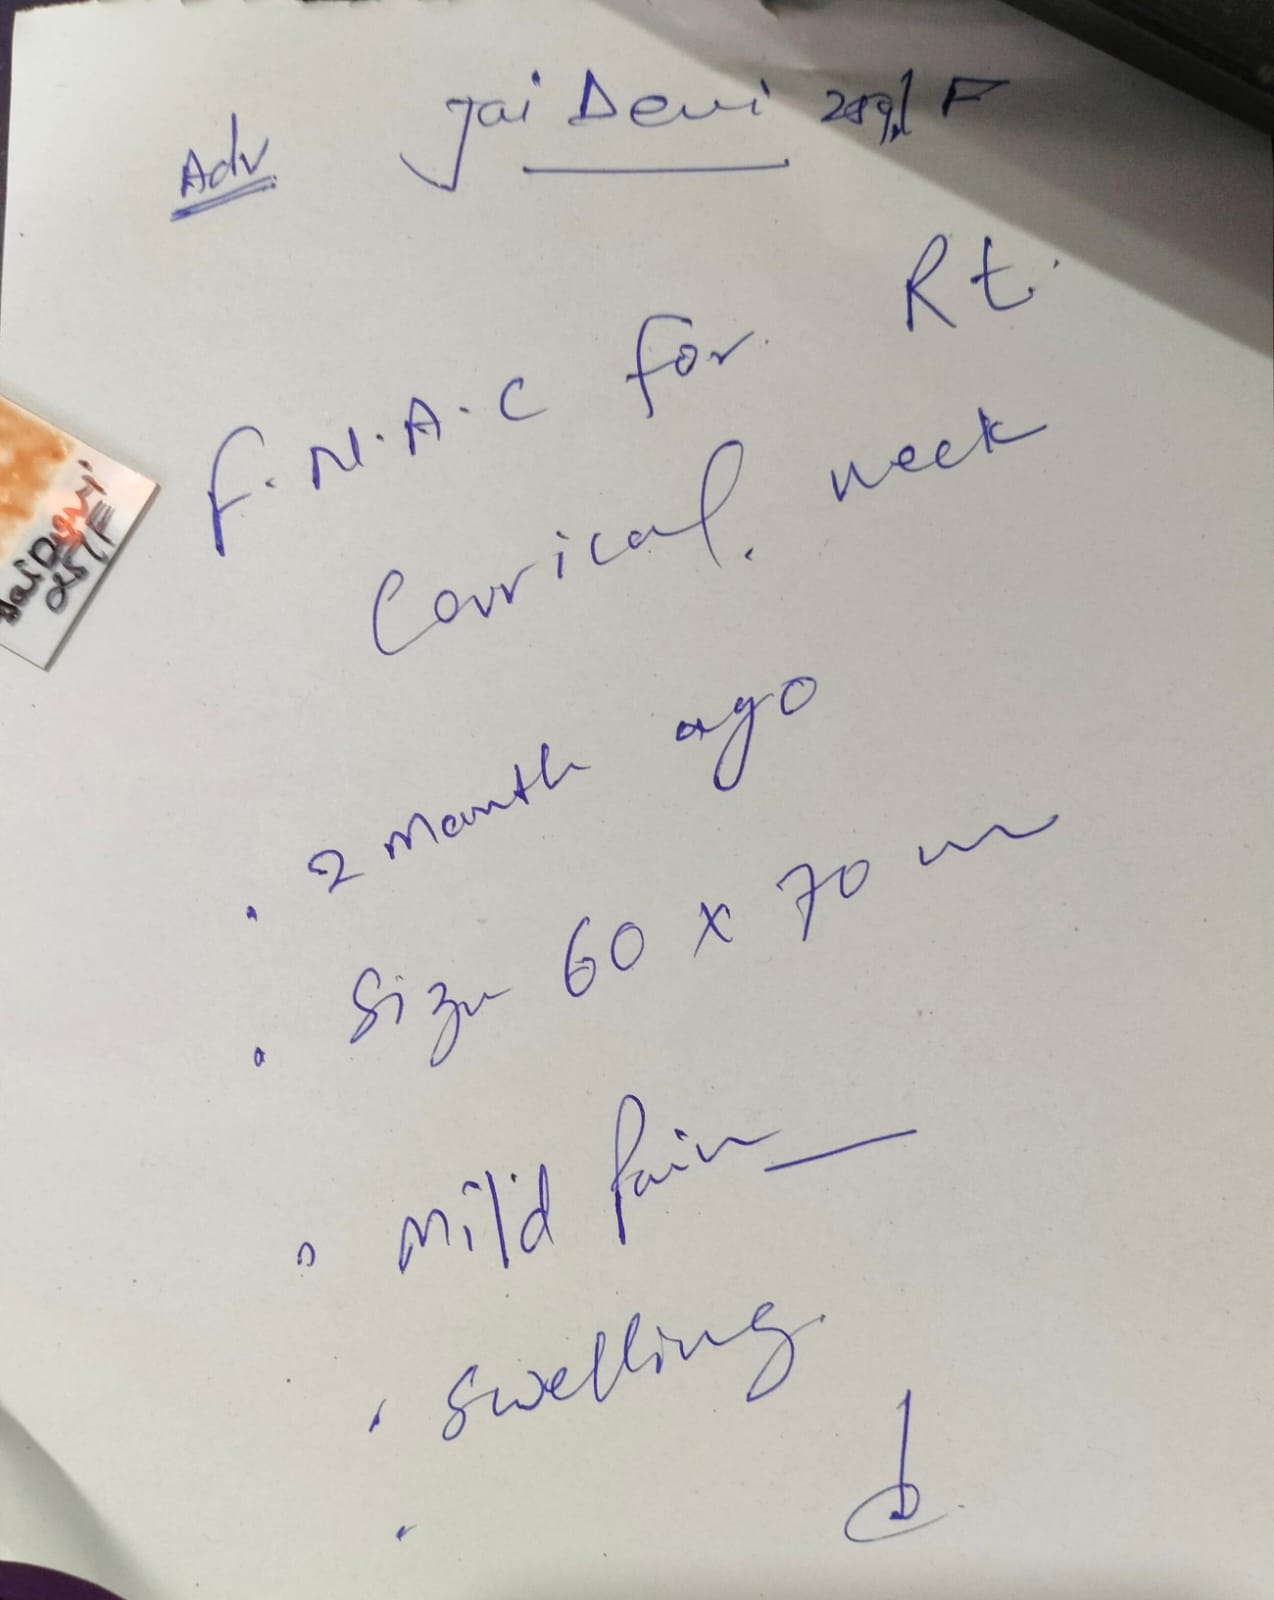 Adv Jai Devi F
F.N.A.C for Rt.
Cervical. neck
. 2 Month ago
. Size 60 x 70 m
. Mild Pain
. Swelling
Jai Devi
25/F